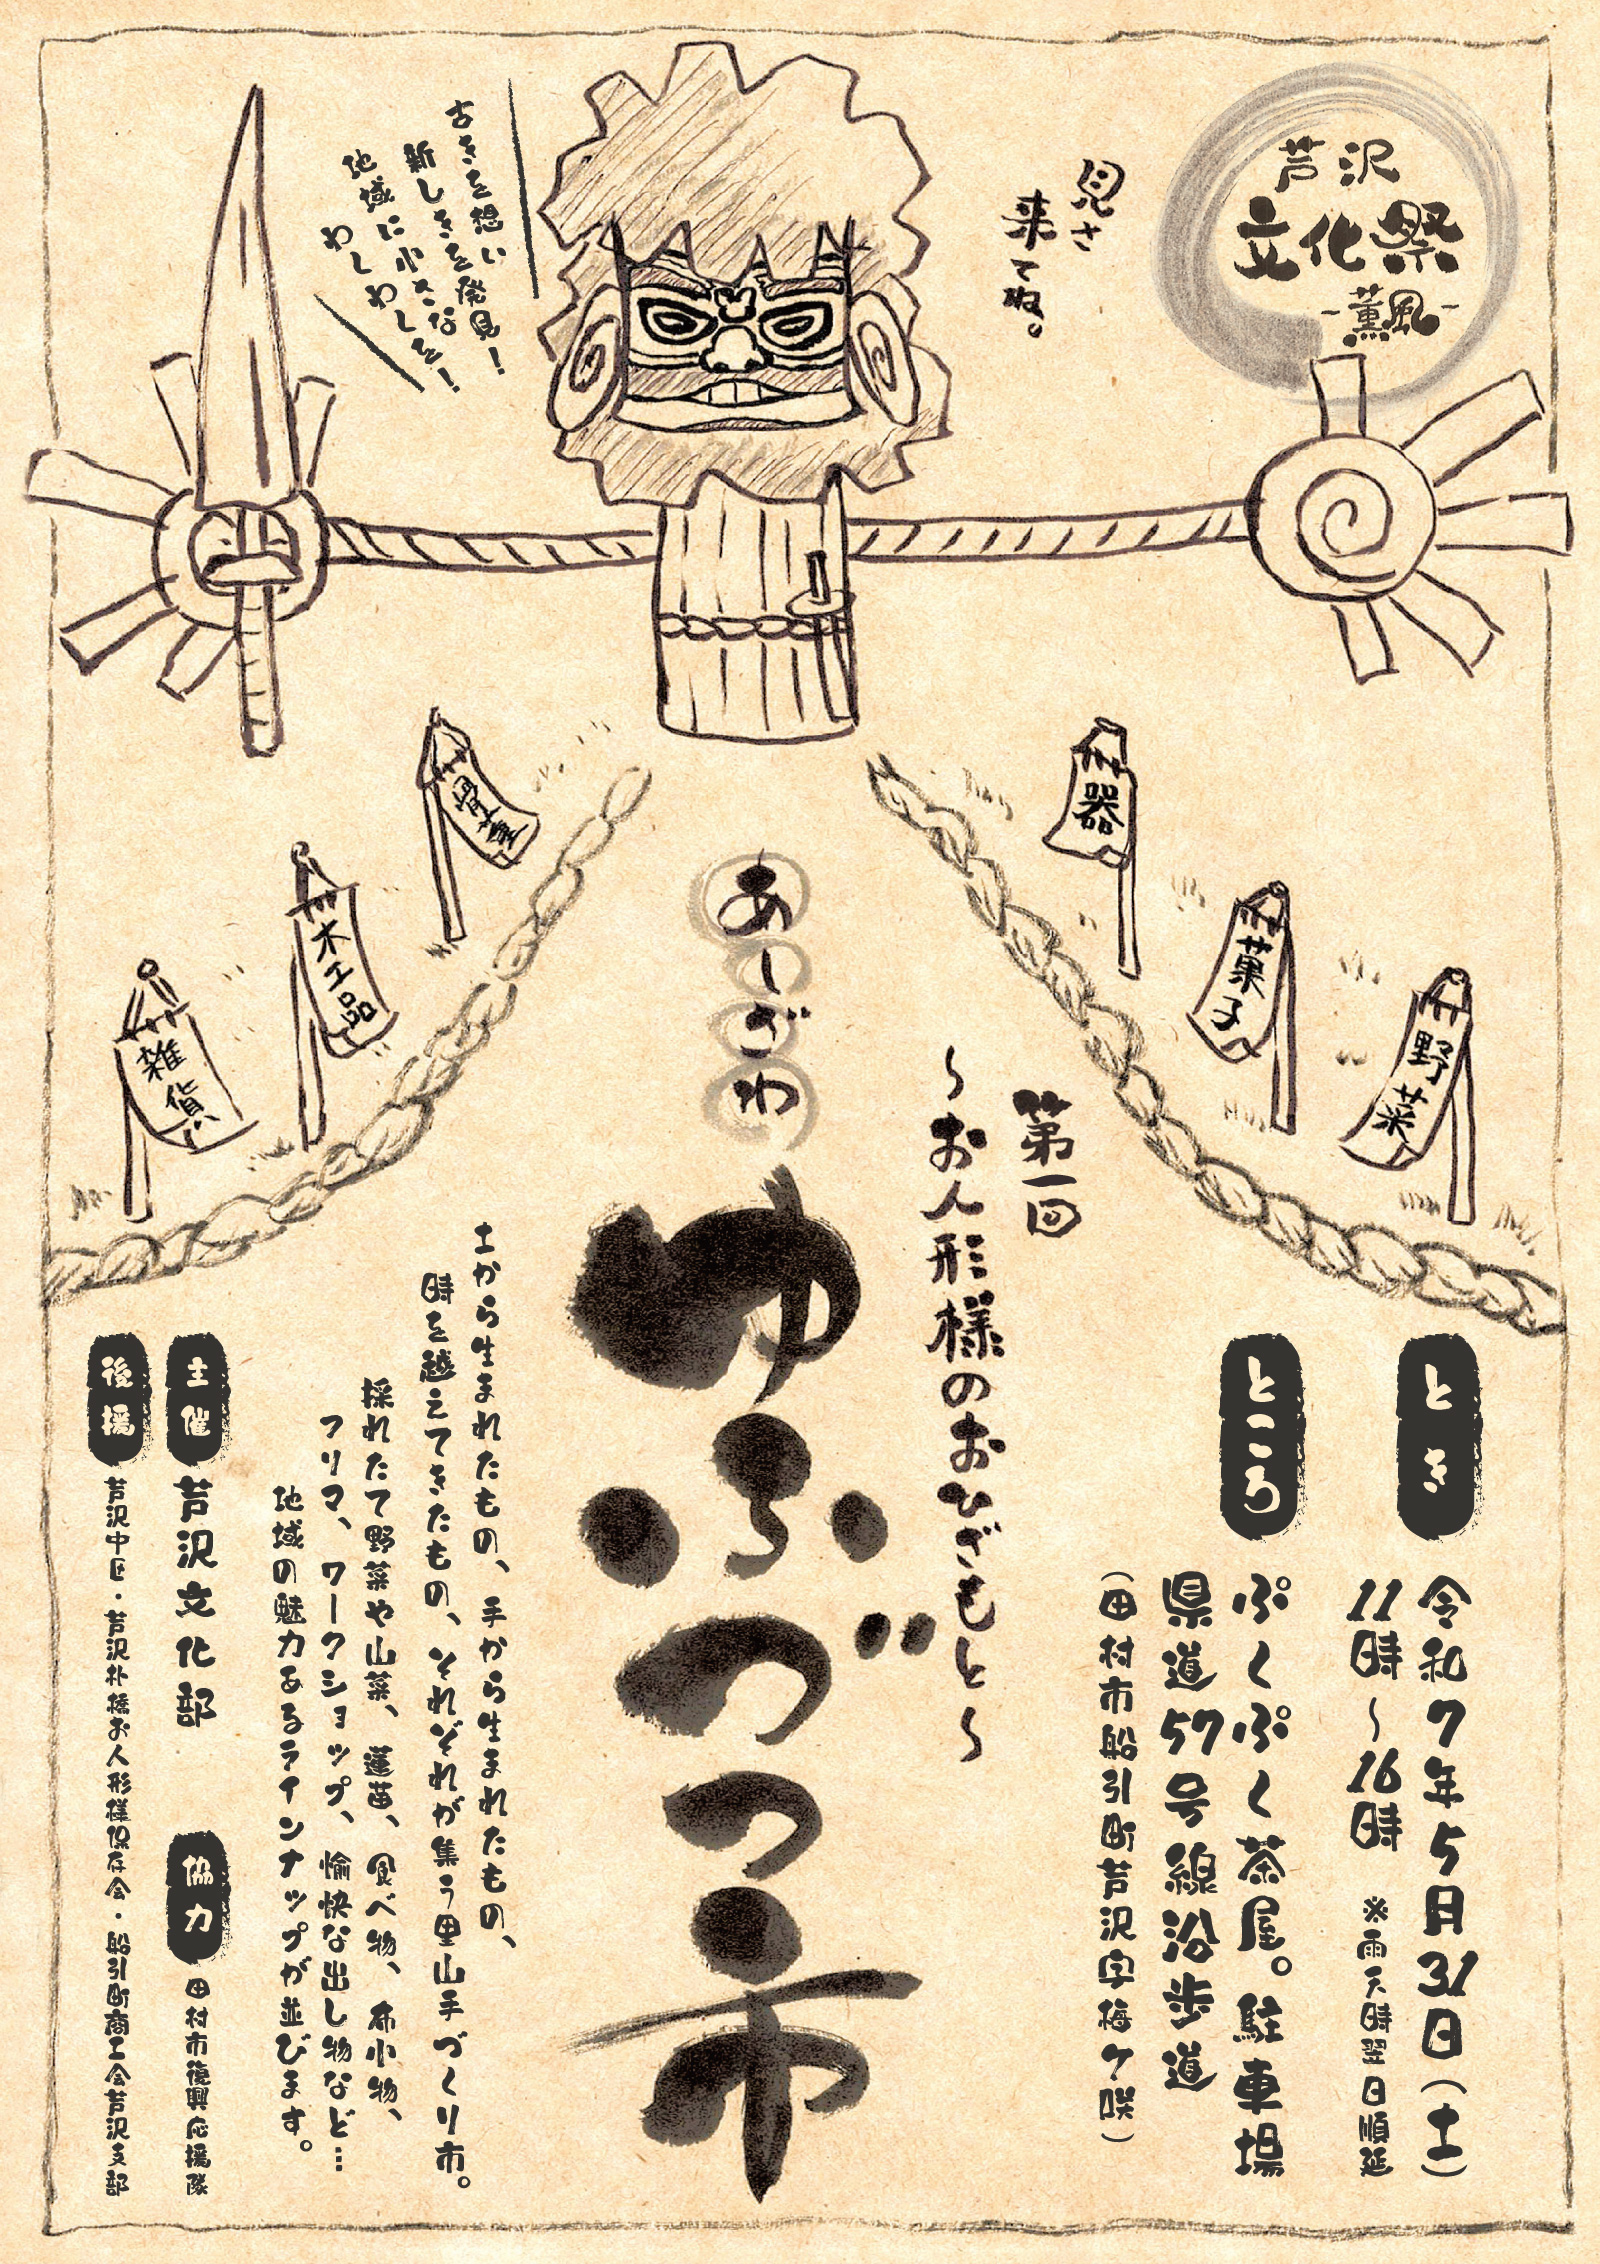 芦沢
文化祭
-薫風-
見さ
来てね。
古きを想い
新しきを発見!
地域に小さな
わしわしを!
骨董
木工品
雑貨
器
菓子
野菜
第一回
~お人形様のおひざもと~
あしざわ
ゆふづつ市
とき
令和7年5月31日(土)
11時~16時 ※雨天時翌日順延
ところ
ぷくぷく茶屋。駐車場
県道57号線沿歩道
(田村市船引町芦沢字梅ケ咲)
土から生まれたもの、手から生まれたもの、
時を越えてきたもの、それぞれが集う里山手づくり市。
採れたて野菜や山菜、蓮苗、食べ物、布小物、
フリマ、ワークショップ、愉快な出し物など…
地域の魅力あるラインナップが並びます。
主催 芦沢文化部
協力 田村市復興応援隊
後援 芦沢中区・芦沢朴橋お人形様保存会・船引町商工会芦沢支部